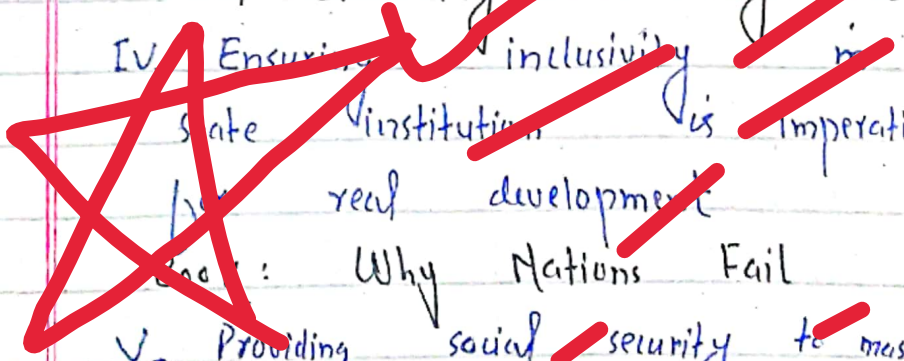 IV Ensuring inclusivity in
state institution is imperati
for real development
Book: Why Nations Fail
V. Providing social security to mas